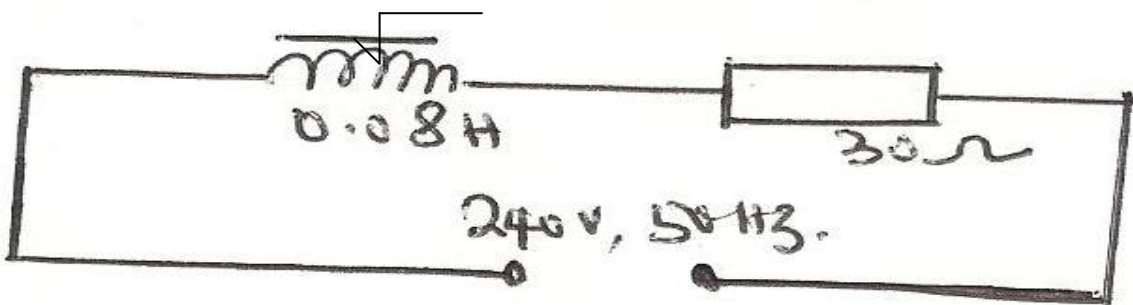 0.08 H
30 Ω
240 V, 50 Hz.